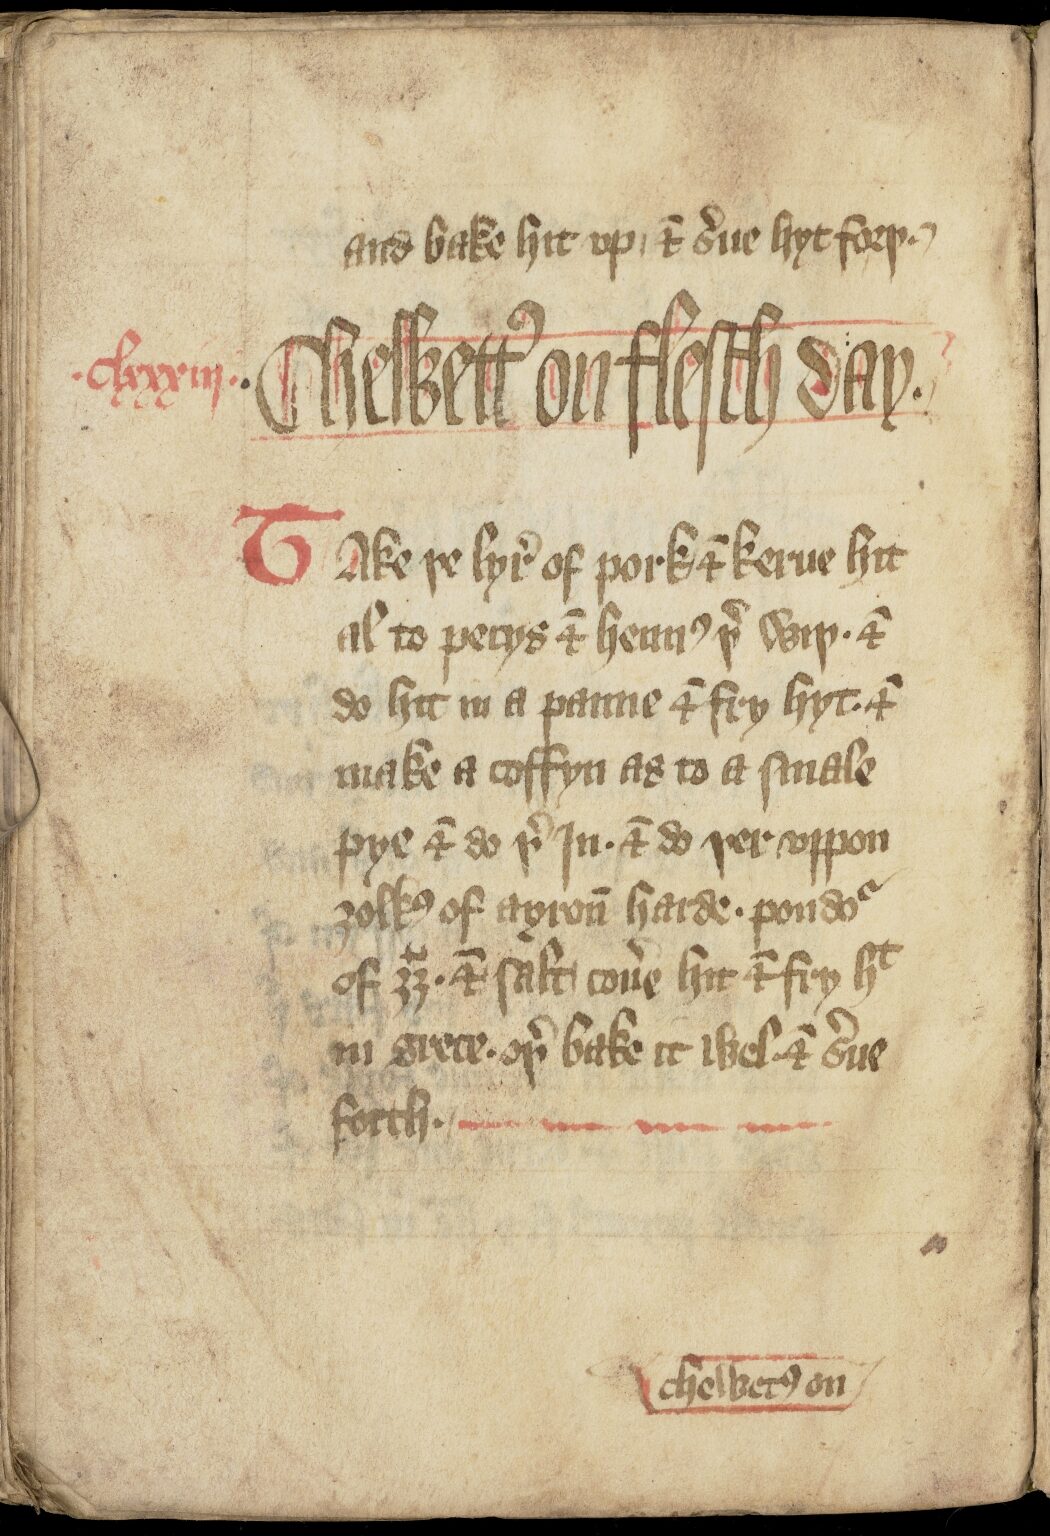 and bake hit vp ⁊ s̉ue hyt forþ.
.clxxxiij. Chewettꝰ on flesch day.
TAke þe lyr̉ of pork ⁊ kerue hit
al to pecys ⁊ hennꝰ þ̉ wiþ. ⁊
do hit in a panne ⁊ fry hyt. ⁊
make a coffyn as to a smale
pye ⁊ do þ̉ In. ⁊ do þer vppon
ȝolkꝰ of ayron̄ harde. poudoͬ
of ȝȝ. ⁊ salt coủe hit ⁊ fry hᵗ
in grece. oþ̉ bake it wel. ⁊ s̉ue
forth.
chewetꝰ on